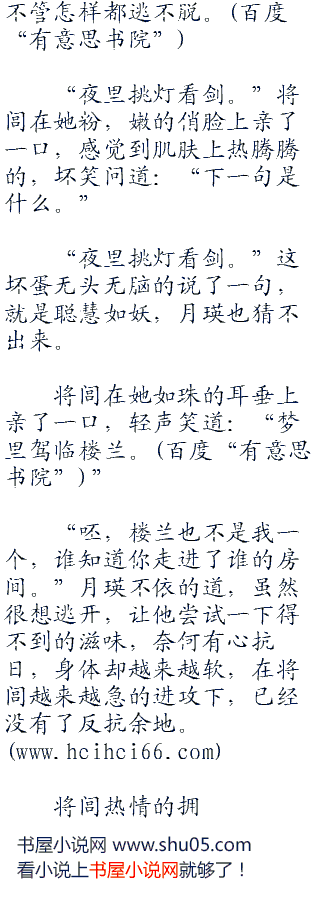 不管怎样都逃不脱。(百度
“有意思书院”)
“夜里挑灯看剑。”将
闾在她粉，嫩的俏脸上亲了
一口，感觉到肌肤上热腾腾
的，坏笑问道：“下一句是
什么。”
“夜里挑灯看剑。”这
坏蛋无头无脑的说了一句，
就是聪慧如妖，月瑛也猜不
出来。
将闾在她如珠的耳垂上
亲了一口，轻声笑道：“梦
里驾临楼兰。(百度“有意思
书院”)”
“呸，楼兰也不是我一
个，谁知道你走进了谁的房
间。”月瑛不依的道，虽然
很想逃开，让他尝试一下得
不到的滋味，奈何有心抗
日，身体却越来越软，在将
闾越来越急的进攻下，已经
没有了反抗余地。
(www.hcihci66.com)
将闾热情的拥
书屋小说网 www.shu05.com
看小说上书屋小说网就够了！